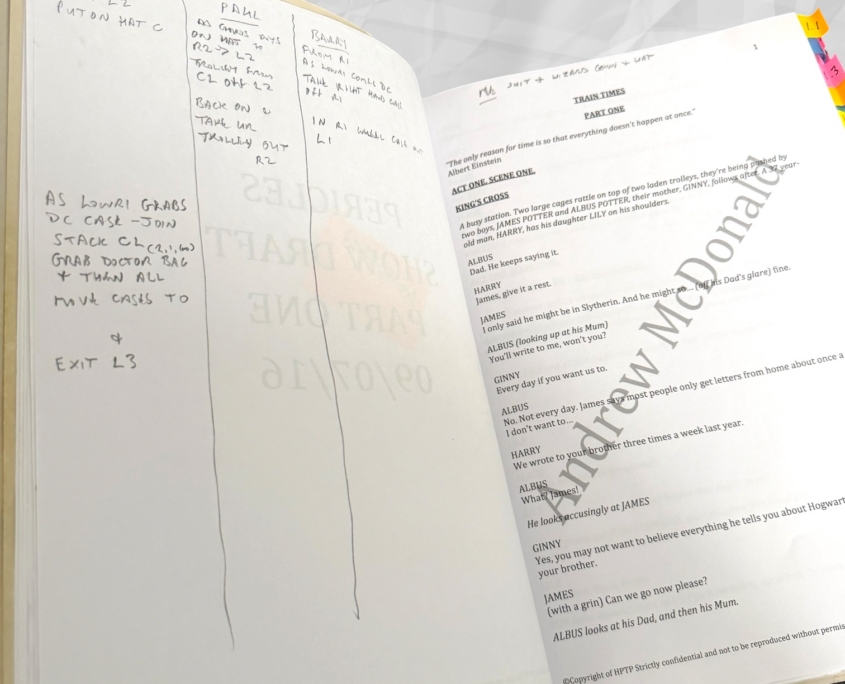 PUT ON HAT C
AS LOWRI GRABS
DC CASE - JOIN
STACK CL (2,1,60)
GRAB DOCTOR BAG
+ THEN ALL
MOVE CASES TO
&
EXIT L3
PAUL
AS CHORUS
ON HAT TO
R2 > L2
TROLLEY FROM
CL OFF L2
BACK ON &
TAKE UR
TROLLEY OUT
R2
BARRY
FROM R1
AS LOWRI COMES DC
TAKE RIGHT HAND CASE
OFF R1
IN R1 WHEEL CASE
L1
PERICLES
SHOW DRAFT
PART ONE
09/07/16
SUIT + WIZARD GOWN + HAT
1
1.1
1.3
TRAIN TIMES
PART ONE
"The only reason for time is so that everything doesn't happen at once."
Albert Einstein
ACT ONE, SCENE ONE.
KING'S CROSS
A busy station. Two large cages rattle on top of two laden trolleys, they're being pushed by
two boys, JAMES POTTER and ALBUS POTTER, their mother, GINNY, follows after. A 37 year-
old man, HARRY, has his daughter LILY on his shoulders.
ALBUS
Dad. He keeps saying it.
HARRY
James, give it a rest.
JAMES
I only said he might be in Slytherin. And he might so... (off his Dad's glare) fine.
ALBUS (looking up at his Mum)
You'll write to me, won't you?
GINNY
Every day if you want us to.
ALBUS
No. Not every day. James says most people only get letters from home about once a
I don't want to...
HARRY
We wrote to your brother three times a week last year.
ALBUS
What? James!
He looks accusingly at JAMES
GINNY
Yes, you may not want to believe everything he tells you about Hogwart
your brother.
JAMES
(with a grin) Can we go now please?
ALBUS looks at his Dad, and then his Mum.
©Copyright of HPTP Strictly confidential and not to be reproduced without permis
Andrew McDonald